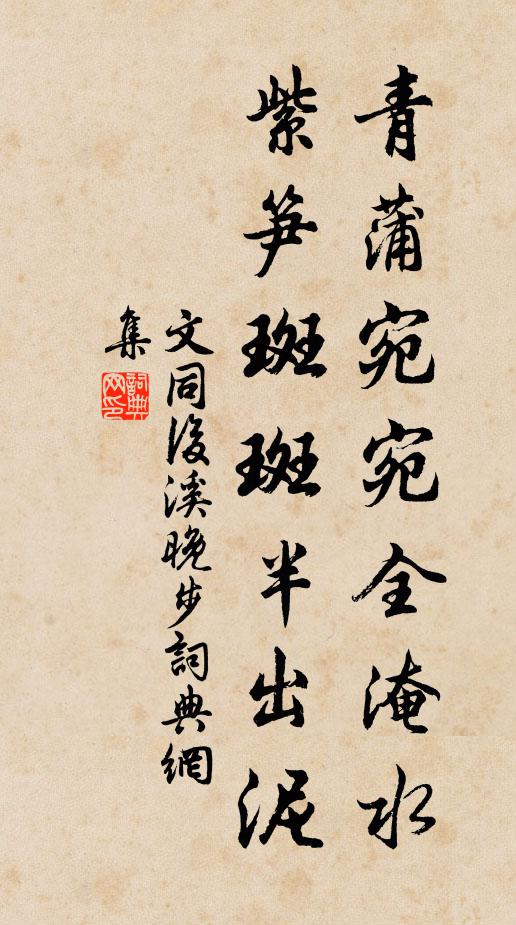 青蒲宛宛全淹水
紫笋斑斑半出泥
文同後溪晚步詞典網
集
詞典
网印